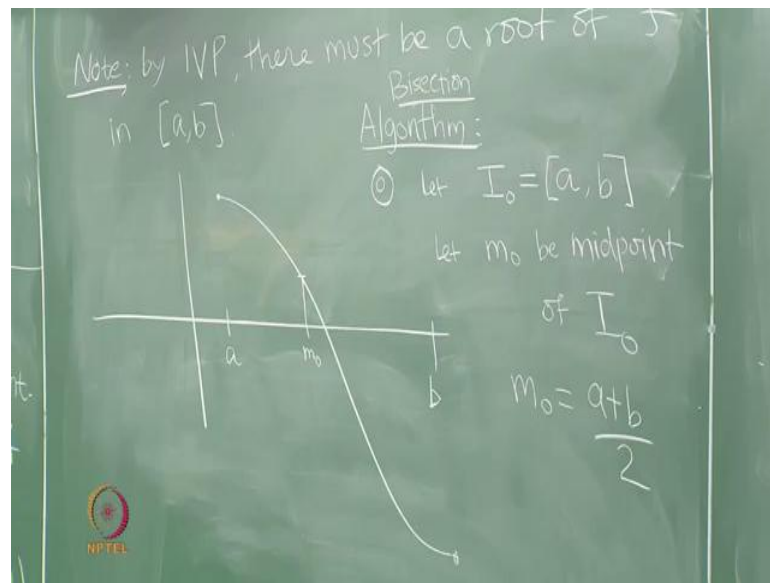 Note: by IVP, there must be a root of f
in [a,b].
Bisection
Algorithm:
⓪ let I₀ = [a, b]
let m₀ be midpoint
of I₀
m₀ = a+b
2
a
m₀
b
t.
NPTEL